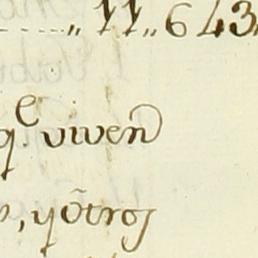 11,,643,,
q.e viven
, y õtros